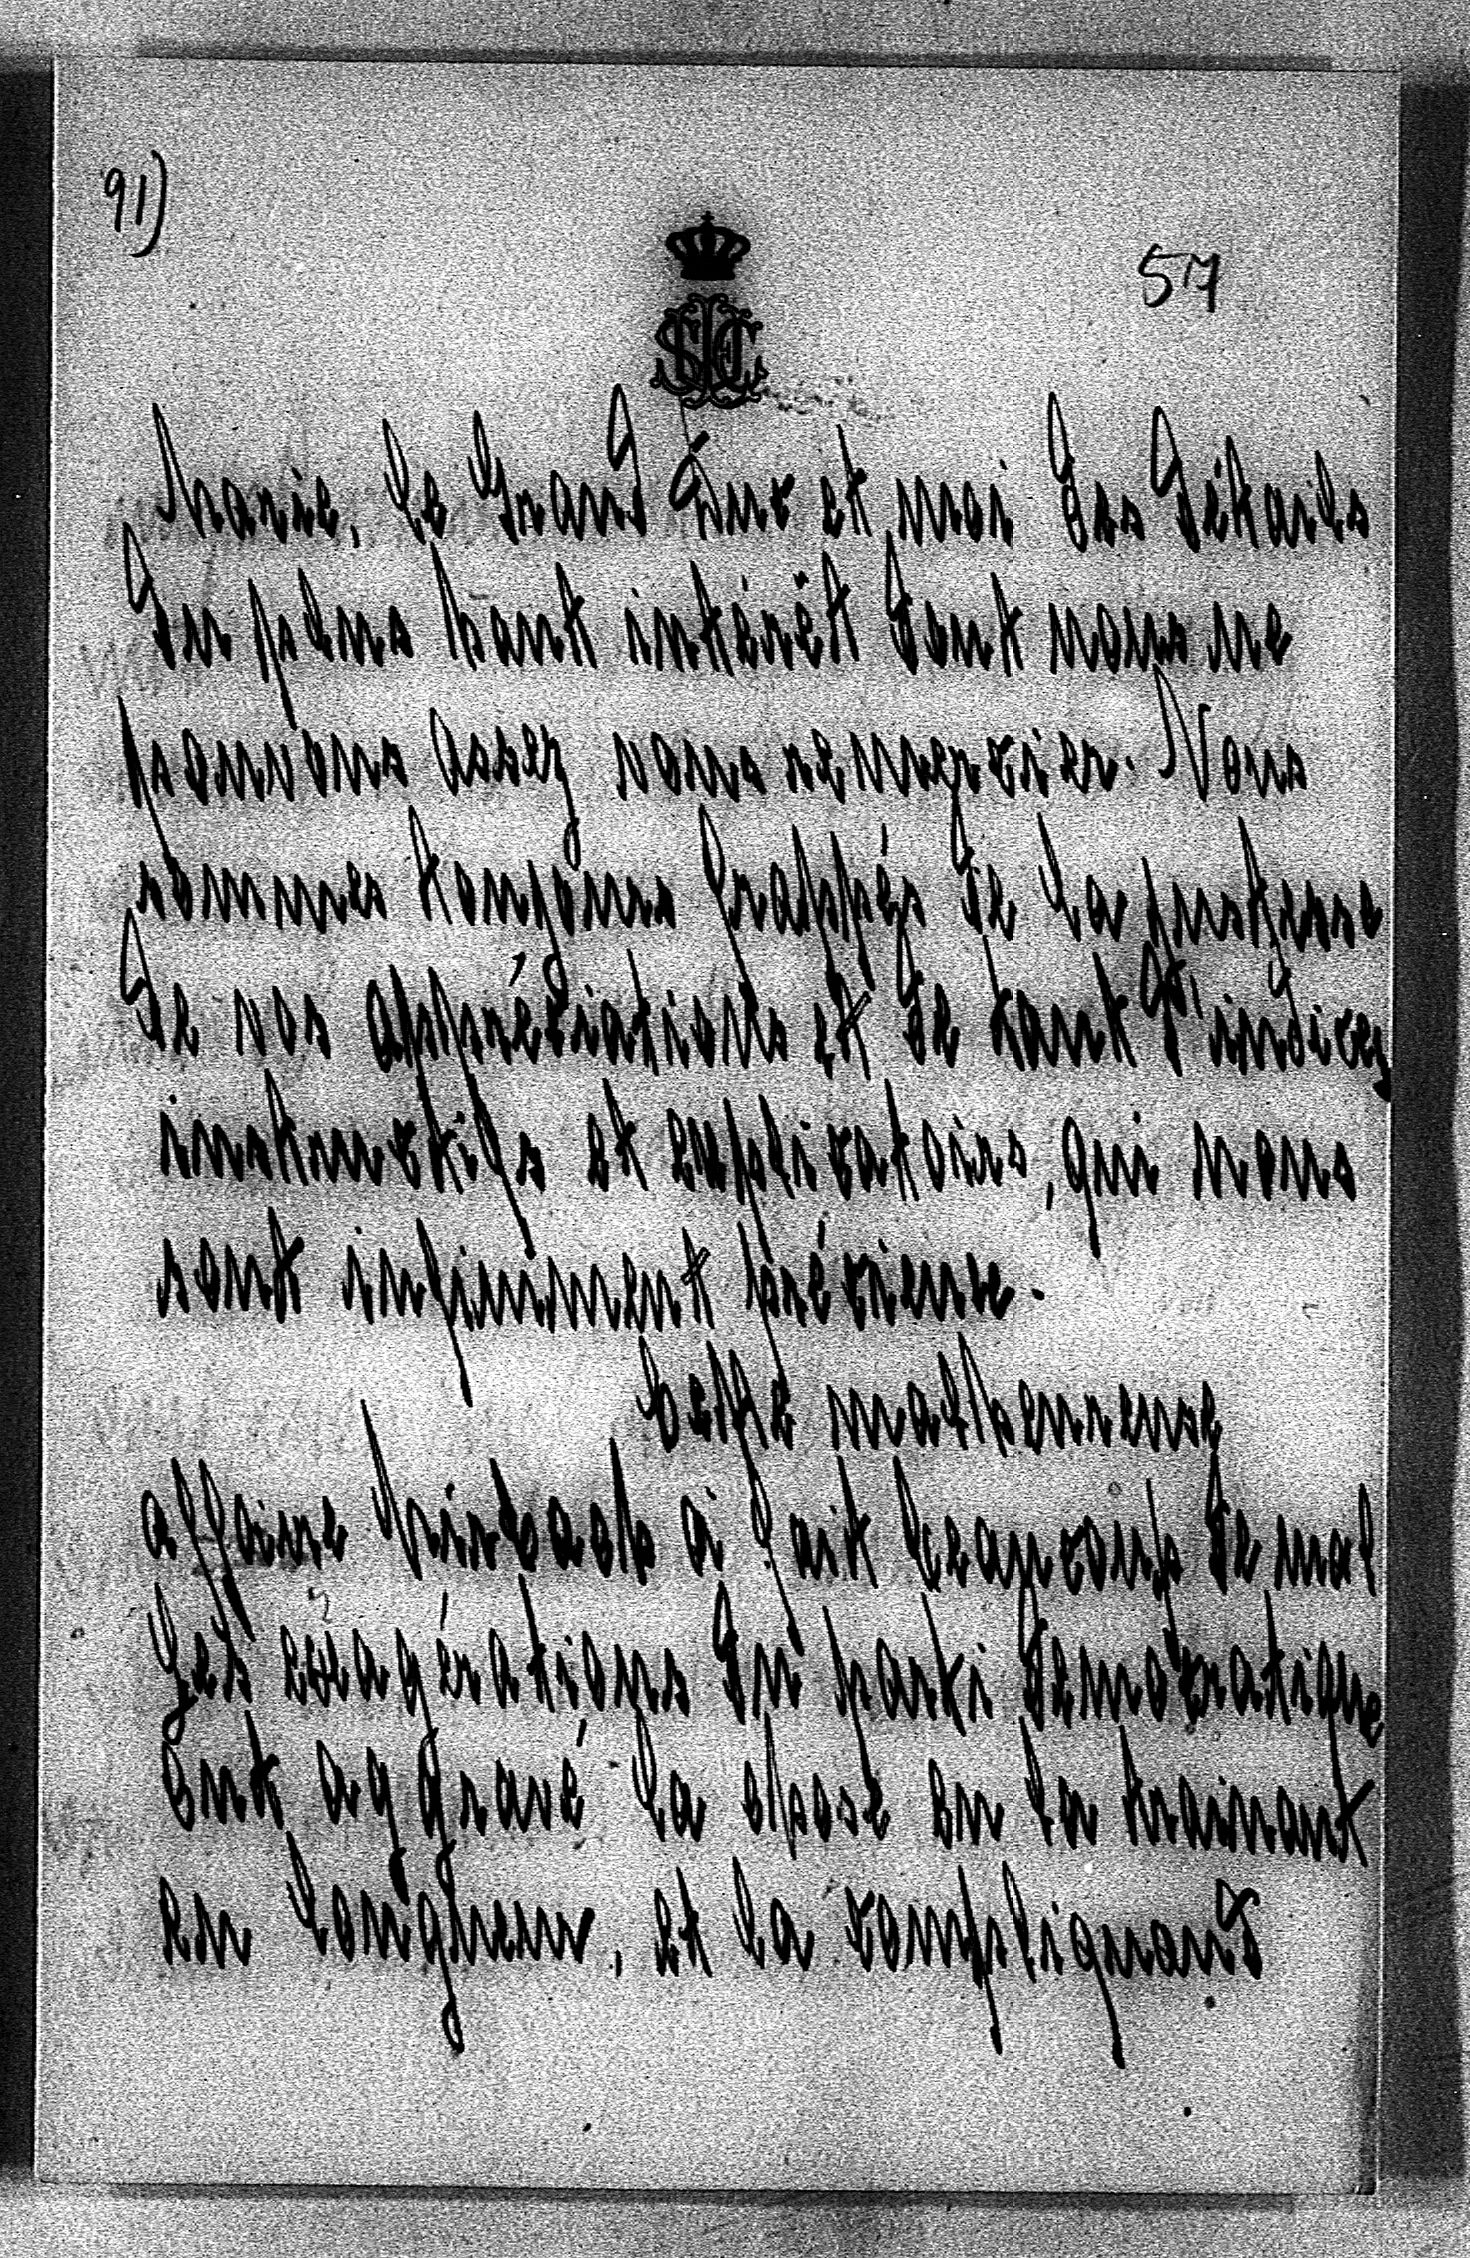 91)
57
Marie, le Grand Duc et moi des détails
du plus haut intérêt dont nous ne
pouvons assez vous remercier. Nous
sommes toujours frappés de la justesse
de vos appréciations et de tant d'indices
instructifs et explicatoirs, qui nous
sont infiniment précieux.
Cette malheureuse
affaire a fait beaucoup de mal
Les exagérations du parti democratique
ont aggravé la chose en la trainant
en longueur, et la compliquant